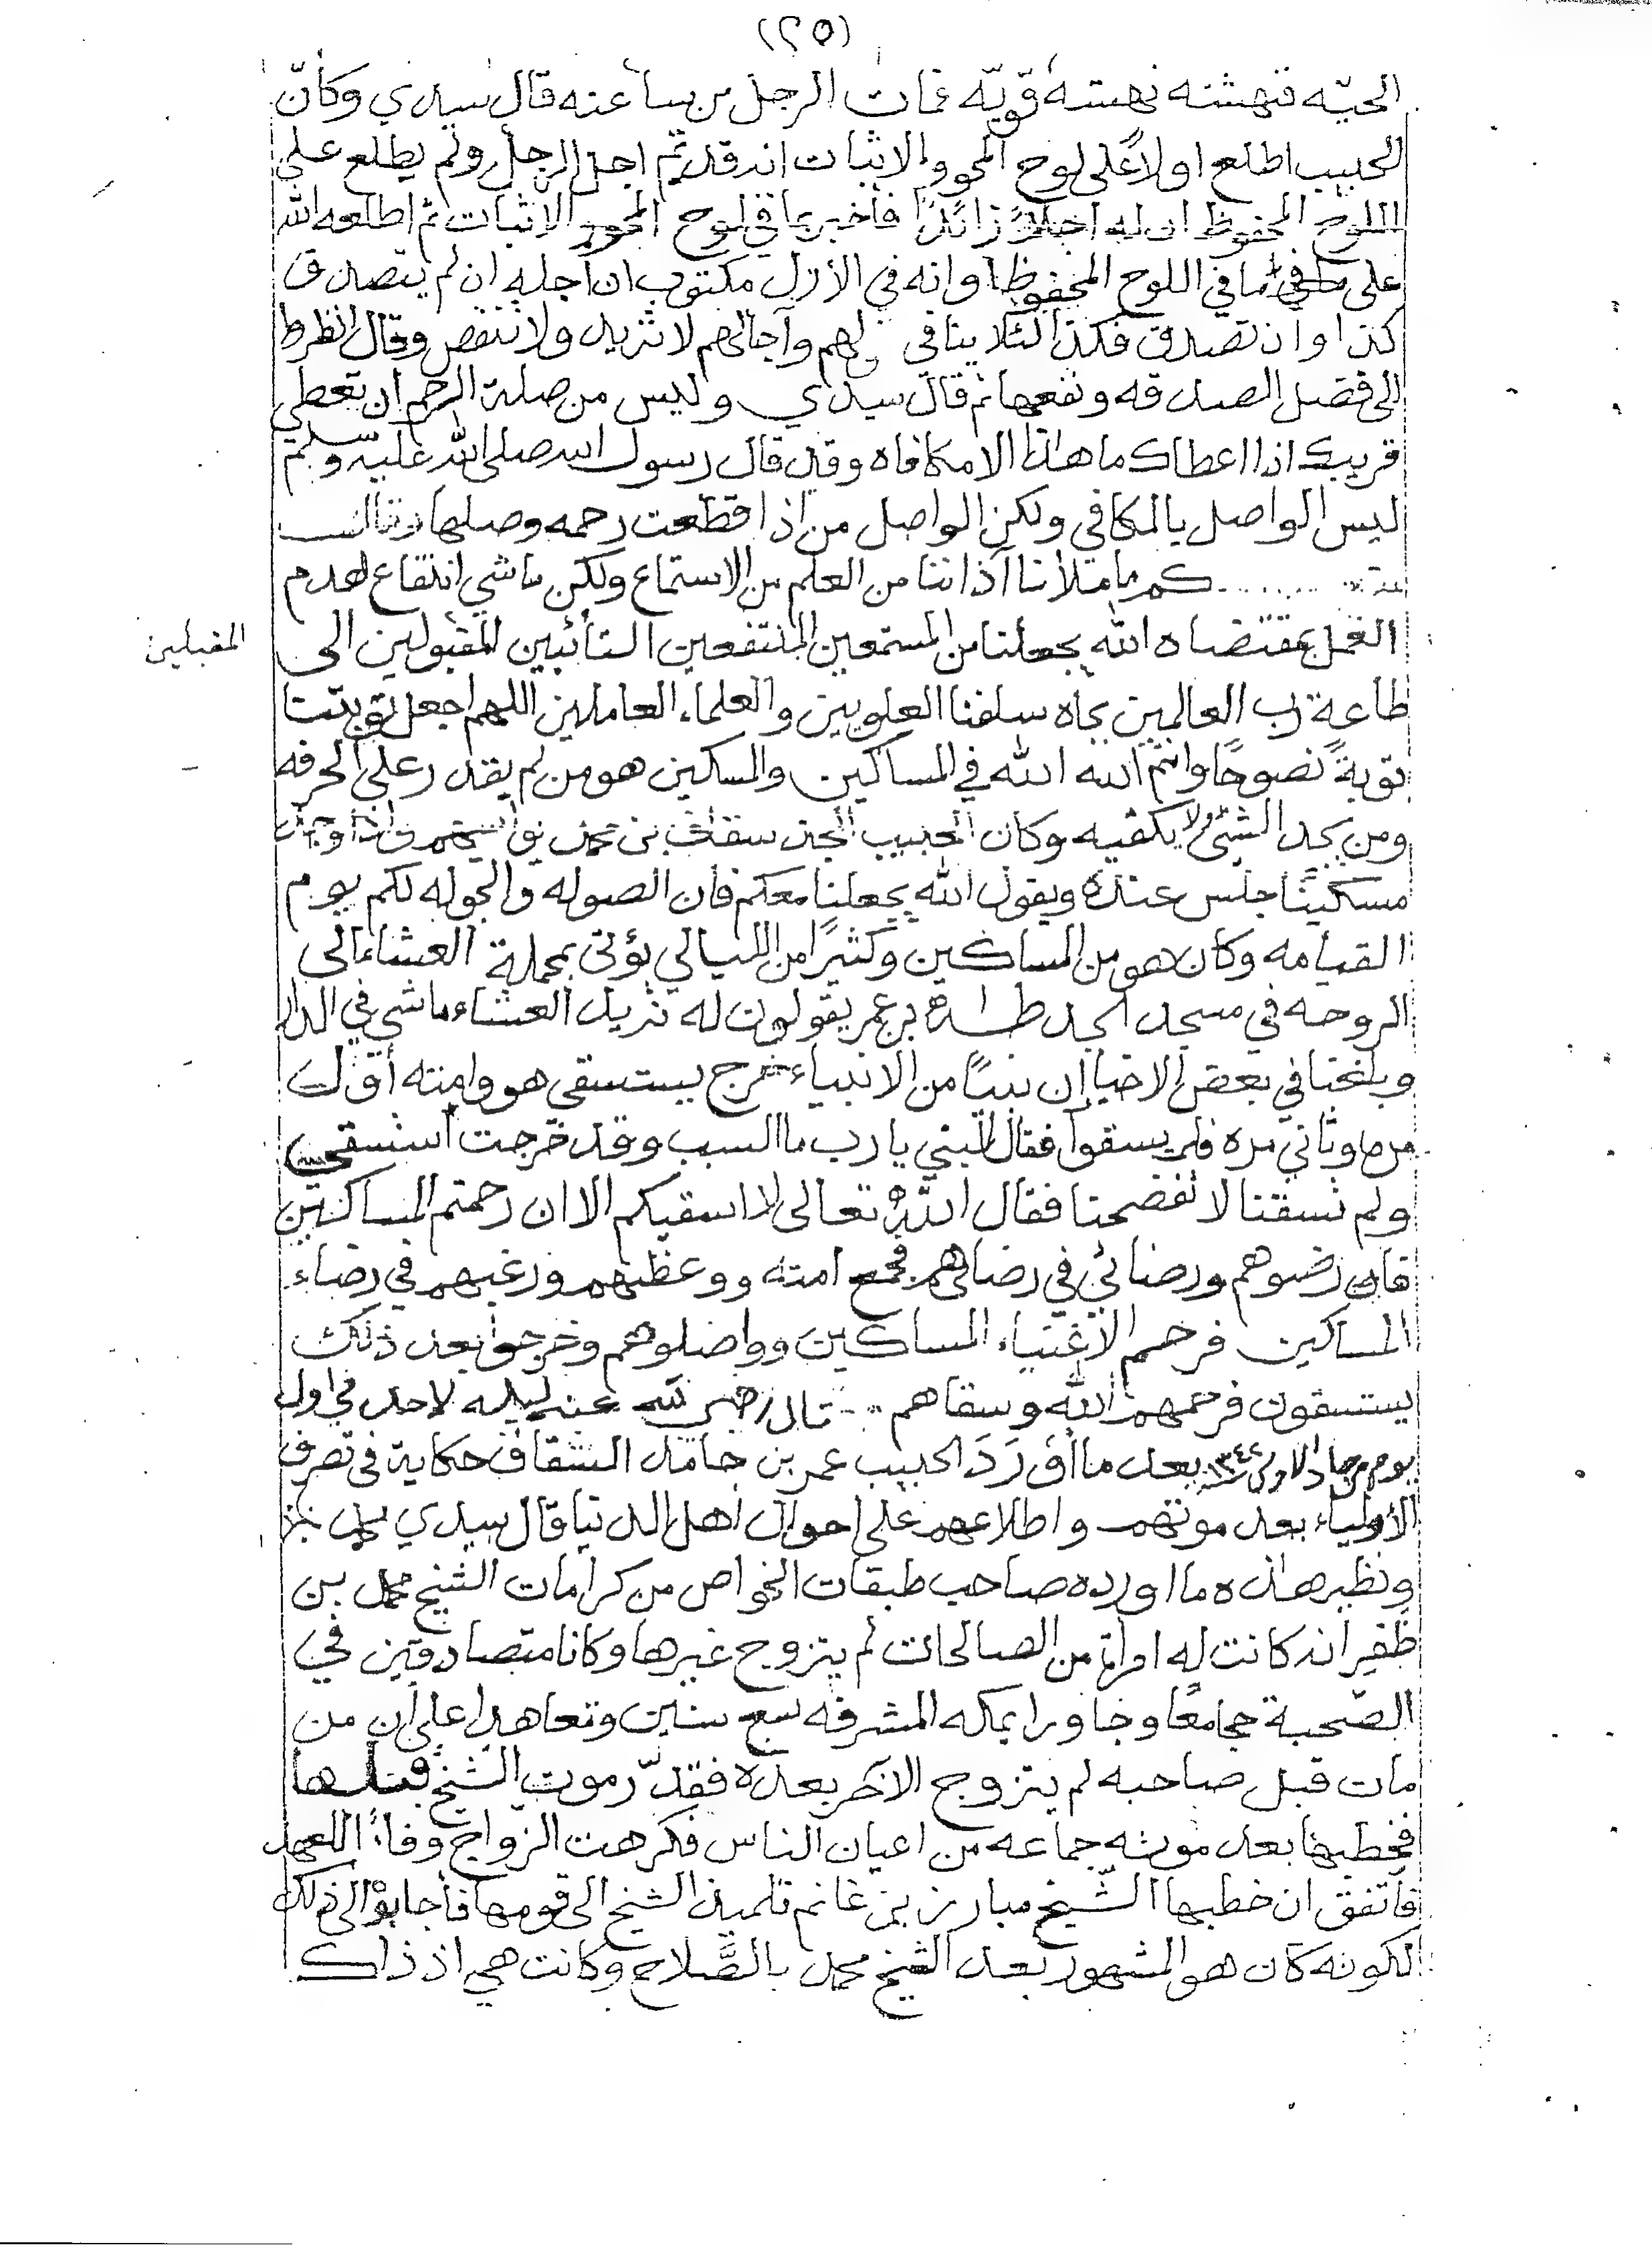 (٢٥)
الحيّه فنهشته نهشة قويّه فمات الرجل من ساعته قال سيدي وكانّ
الحبيب اطلع اولاً على لوح المحو والاثبات انه قد تم اجل الرجل ولم يطلع على
اللوح المحفوظ ان له اجلاً زائدًا فأخبر بما في لوح المحو والاثبات ثم اطلعه الله
على ما في اللوح المحفوظ وانه في الأزل مكتوب ان اجله ان لم يتصدق
كذا وان تصدق فكذا لئلا ينافي لهم وآجالهم لا تزيد ولا تنقص وقال انظر
الى فضل الصدقه ونفعها ثم قال سيدي وليس من صلة الرحم ان تعطي
قريبك اذا اعطاك ما هذا الا مكافاه وقد قال رسول الله صلى الله عليه وسلم
ليس الواصل بالمكافي ولكن الواصل من اذا قطعت رحمه وصلها
كم ما متلأنا آذاننا من العلم من الاستماع ولكن ماشي انتفاع لعدم
العمل بمقتضاه الله يجعلنا من المستمعين المنتفعين التأئبين المقبولين الى
المقبلين
طاعة رب العالمين بجاه سلفنا العلويين والعلماء العاملين اللهم اجعل توبتنا
توبةً نصوحًا وانتم الله الله في المساكين والمسكين هو من لم يقدر على الحرفه
ومن يجد الشئ لا يكفيه وكان الحبيب الجد سقاف بن محمد
مسكينًا جلس عنده ويقول الله يجعلنا معكم فان الصوله والجوله لكم يوم
القيامه وكان هو من المساكين وكثيرًا من الليالي يؤتى بحملة العشاء الى
الروحه في مسجد الجد طه بن عمر يقولون له نزيل العشاء ماشي في الدار
وبلغنا في بعض الاخبار ان نبيًا من الانبياء خرج يستسقي هو وامته أول
مره وثاني مره فلم يسقوا فقال النبي يا رب ما السبب وقد خرجت استسقي
ولم تسقنا لا تفضحنا فقال اللهُ تعالى لا اسقيكم الا ان رحمتم المساكين
فارضوهم ورضائي في رضاهم فجمع امته ووعظهم ورغبهم في رضاء
المساكين فرحم الاغنياء المساكين وواصلوهم وخرجوا بعد ذلك
يستسقون فرحمهم الله وسقاهم قال رضي الله عنه ليله لاحد في اول
يوم من جماد الاولى ١٣٤٤ بعد ما أورَدَ الحبيب عمر بن حامد السقاف حكاية في تصرف
الأولياء بعد موتهم واطلاعهم على احوال اهل الدنيا قال سيدي
ونظير هذه ما اورده صاحب طبقات الخواص من كرامات الشيخ محمد بن
ظفير انه كانت له امرأة من الصالحات لم يتزوج غيرها وكانا متصادقين في
الصّحبة حجا معًا وجاورا بمكه المشرفه سبع سنين وتعاهدا على ان من
مات قبل صاحبه لم يتزوج الاخر بعده فقدّر موت الشيخ قبلها
فخطبها بعد موته جماعه من اعيان الناس فكرهت الزواج وفاءً اللعهد
فاتفق ان خطبها الشّيخ مبارز بن غانم تلميذ الشيخ الى قومها فأجابوْا الى ذلك
لكونه كان هو المشهور بعد الشيخ محمد بالصَّلاح وكانت هي اذ ذاك